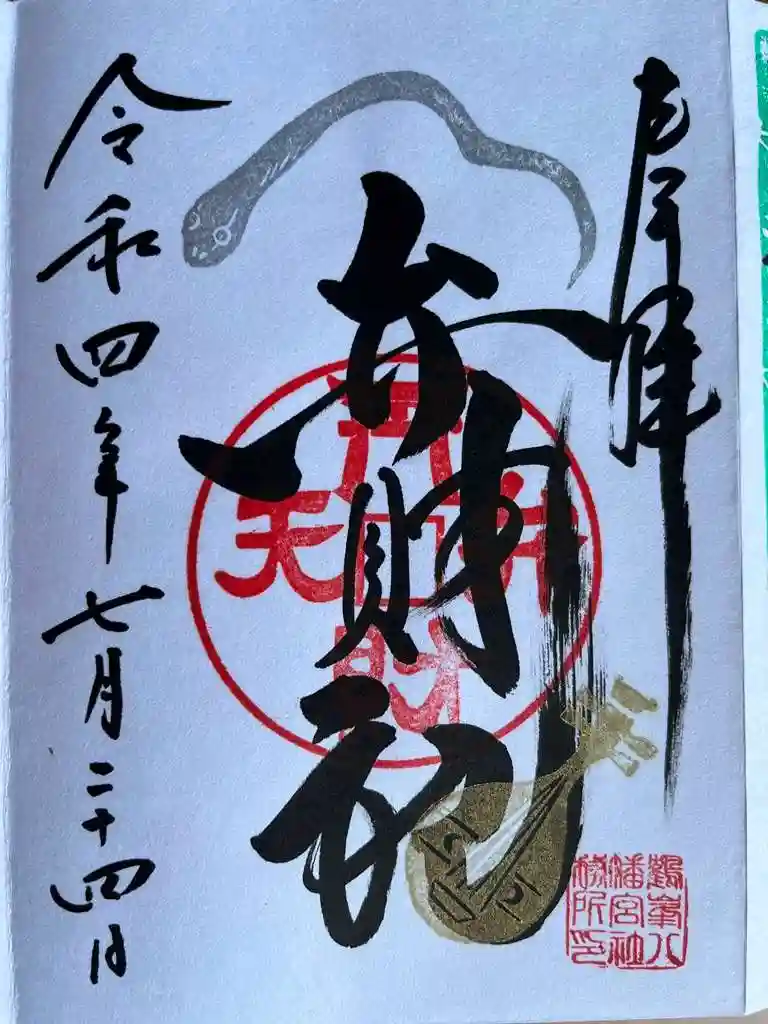 奉拝
弁財
弁財天
令和四年七月二十四日
鶴峯八
幡宮社
務所印